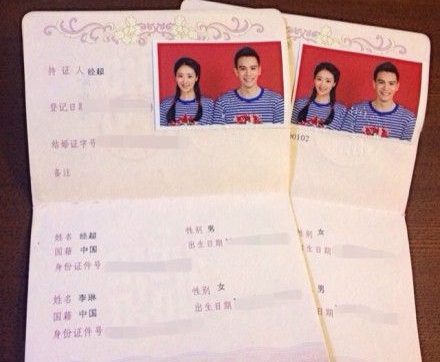 持证人 经超
登记日期
结婚证字号
备注
姓名 经超 性别 男
国籍 中国 出生日期
身份证件号
姓名 李琳 性别 女
国籍 中国 出生日期
身份证件号
00102
女
男